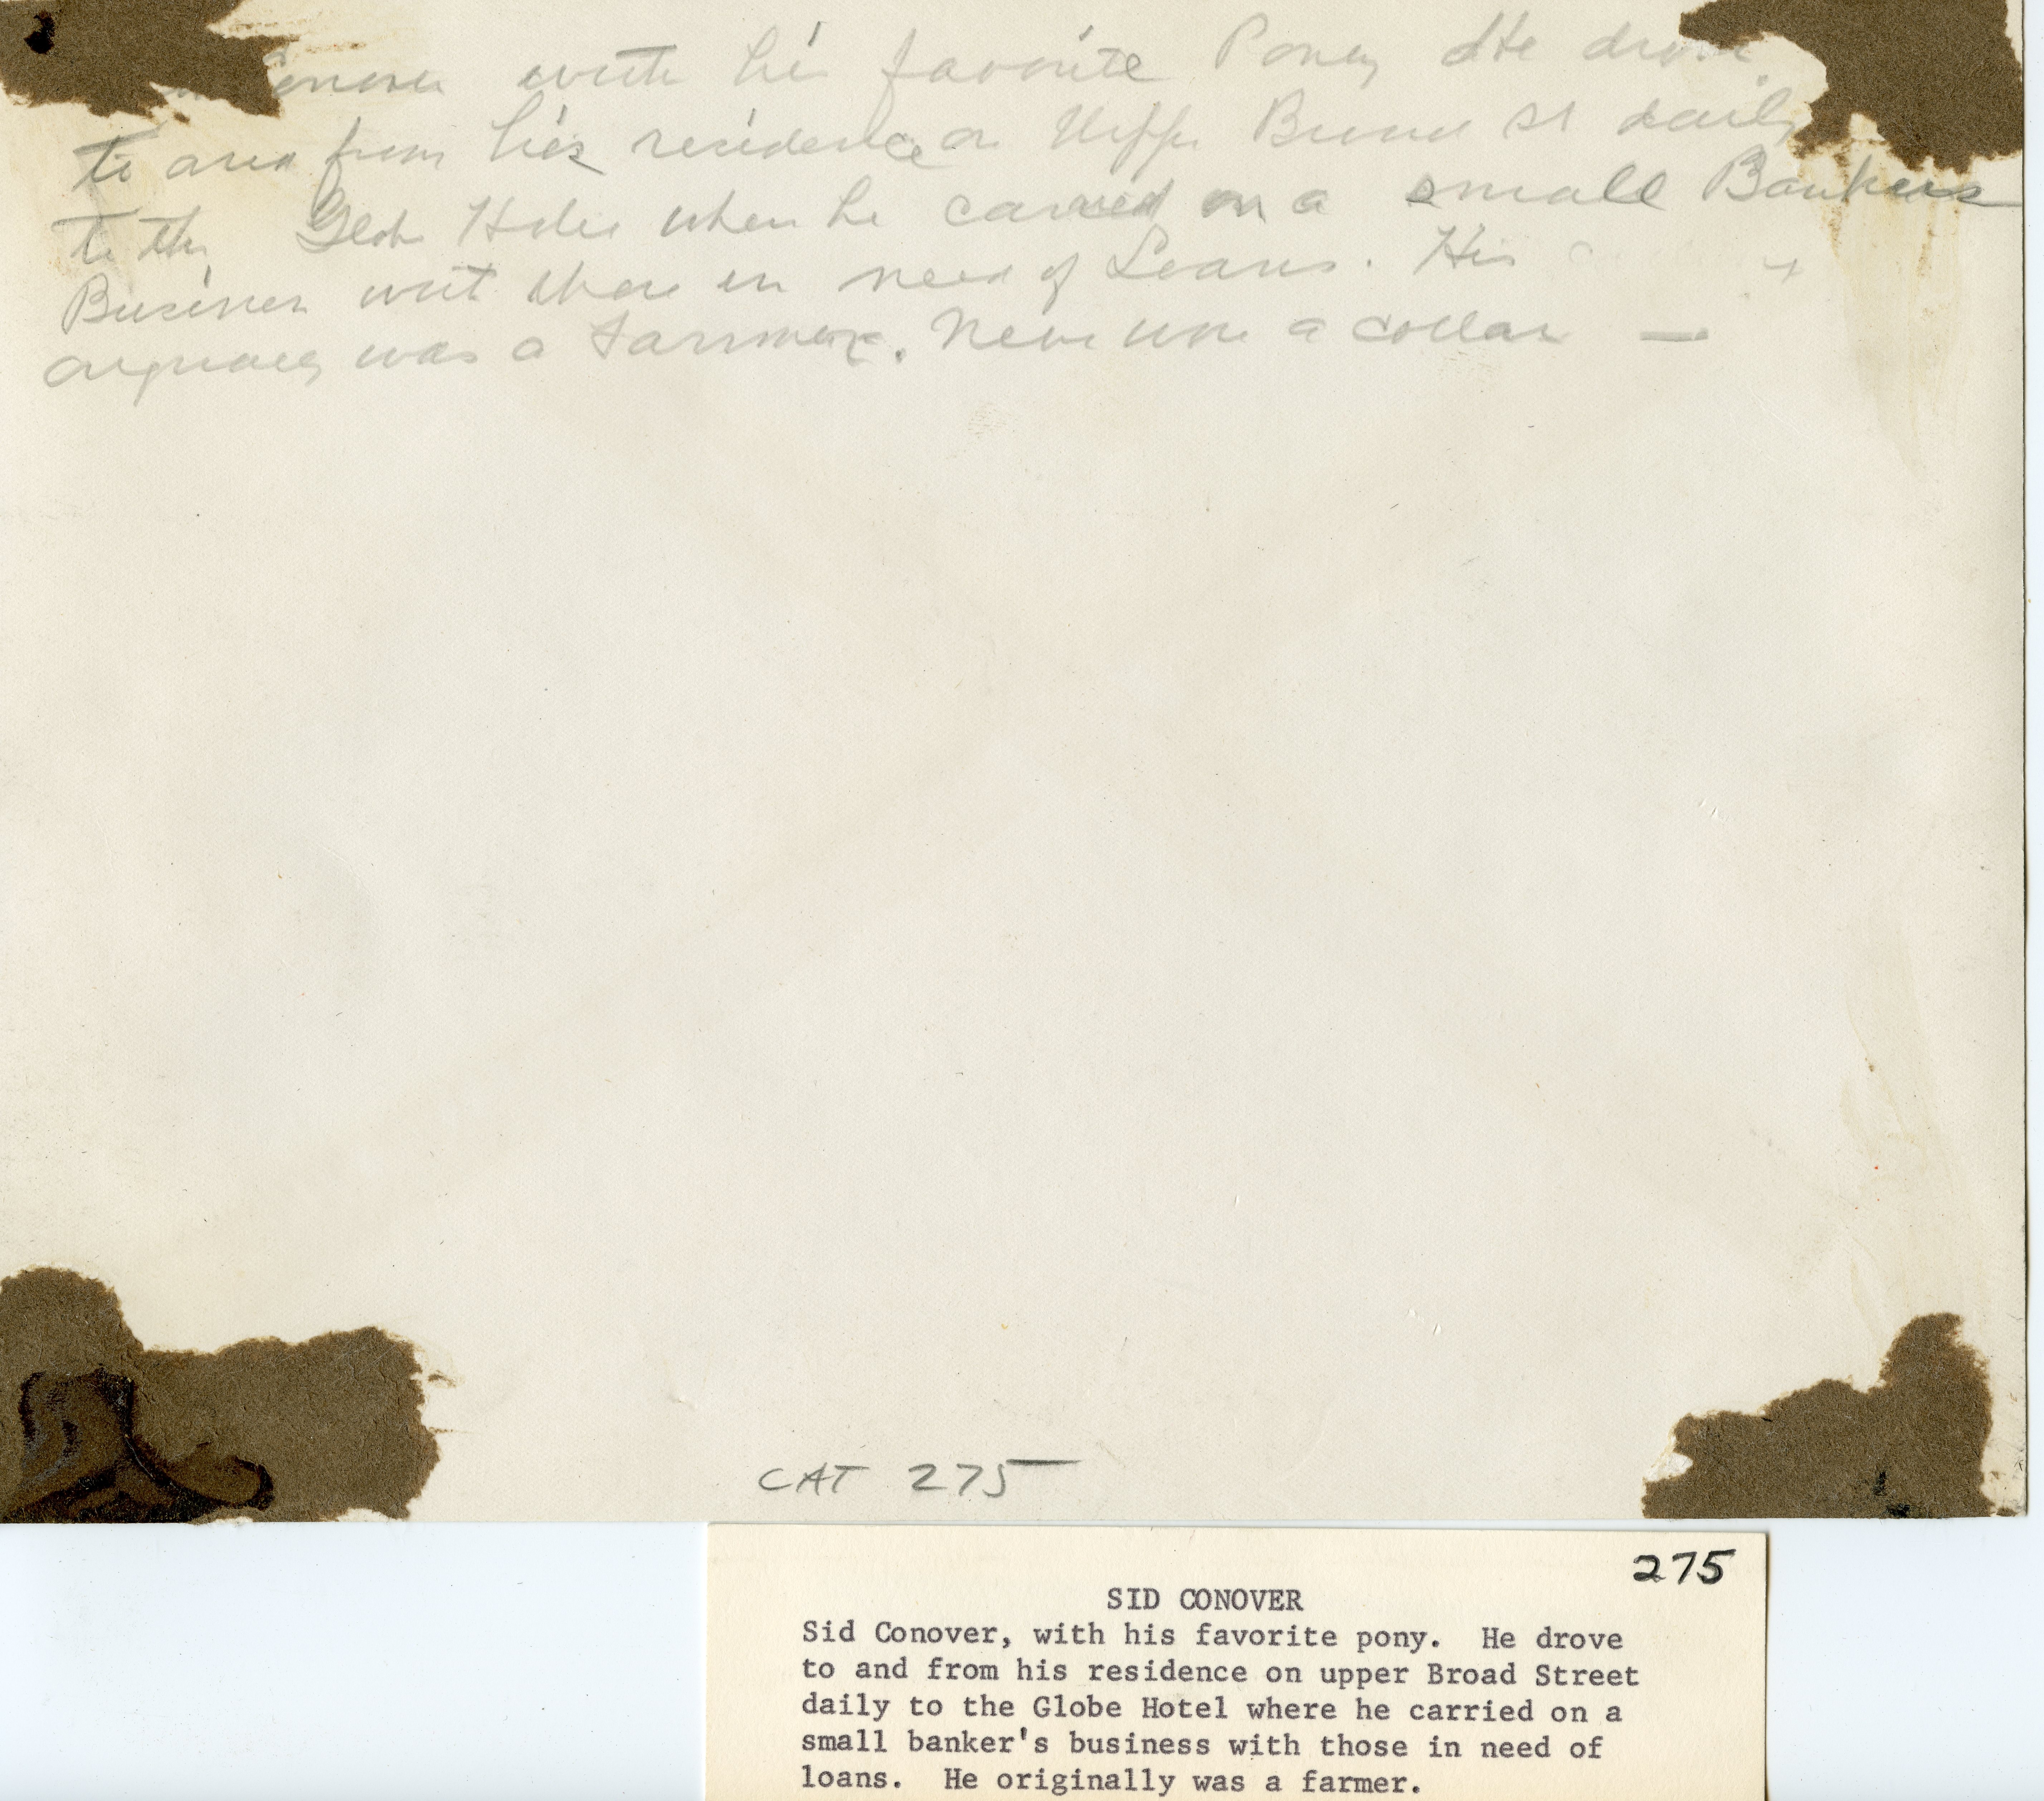 Conover with his favorite Poney He drove
to and from his residence on Upper Broad St daily
to the Globe Hotel where he carried on a small Bankers
Business with those in need of Loans. His
orginaly was a Farmer. Never wore a collar —
CAT 275
275
SID CONOVER
Sid Conover, with his favorite pony.  He drove
to and from his residence on upper Broad Street
daily to the Globe Hotel where he carried on a
small banker's business with those in need of
loans.  He originally was a farmer.